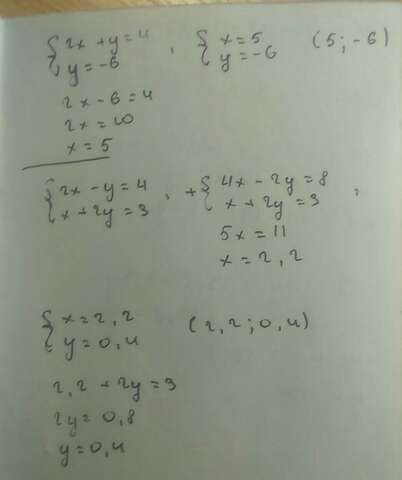 {2x + y = 4 , {x = 5 (5; -6)
{y = -6 {y = -6
2x - 6 = 4
2x = 10
x = 5
{2x - y = 4 , + {4x - 2y = 8 ,
{x + 2y = 3 {x + 2y = 3
5x = 11
x = 2,2
{x = 2,2 (2,2; 0,4)
{y = 0,4
2,2 + 2y = 3
2y = 0,8
y = 0,4